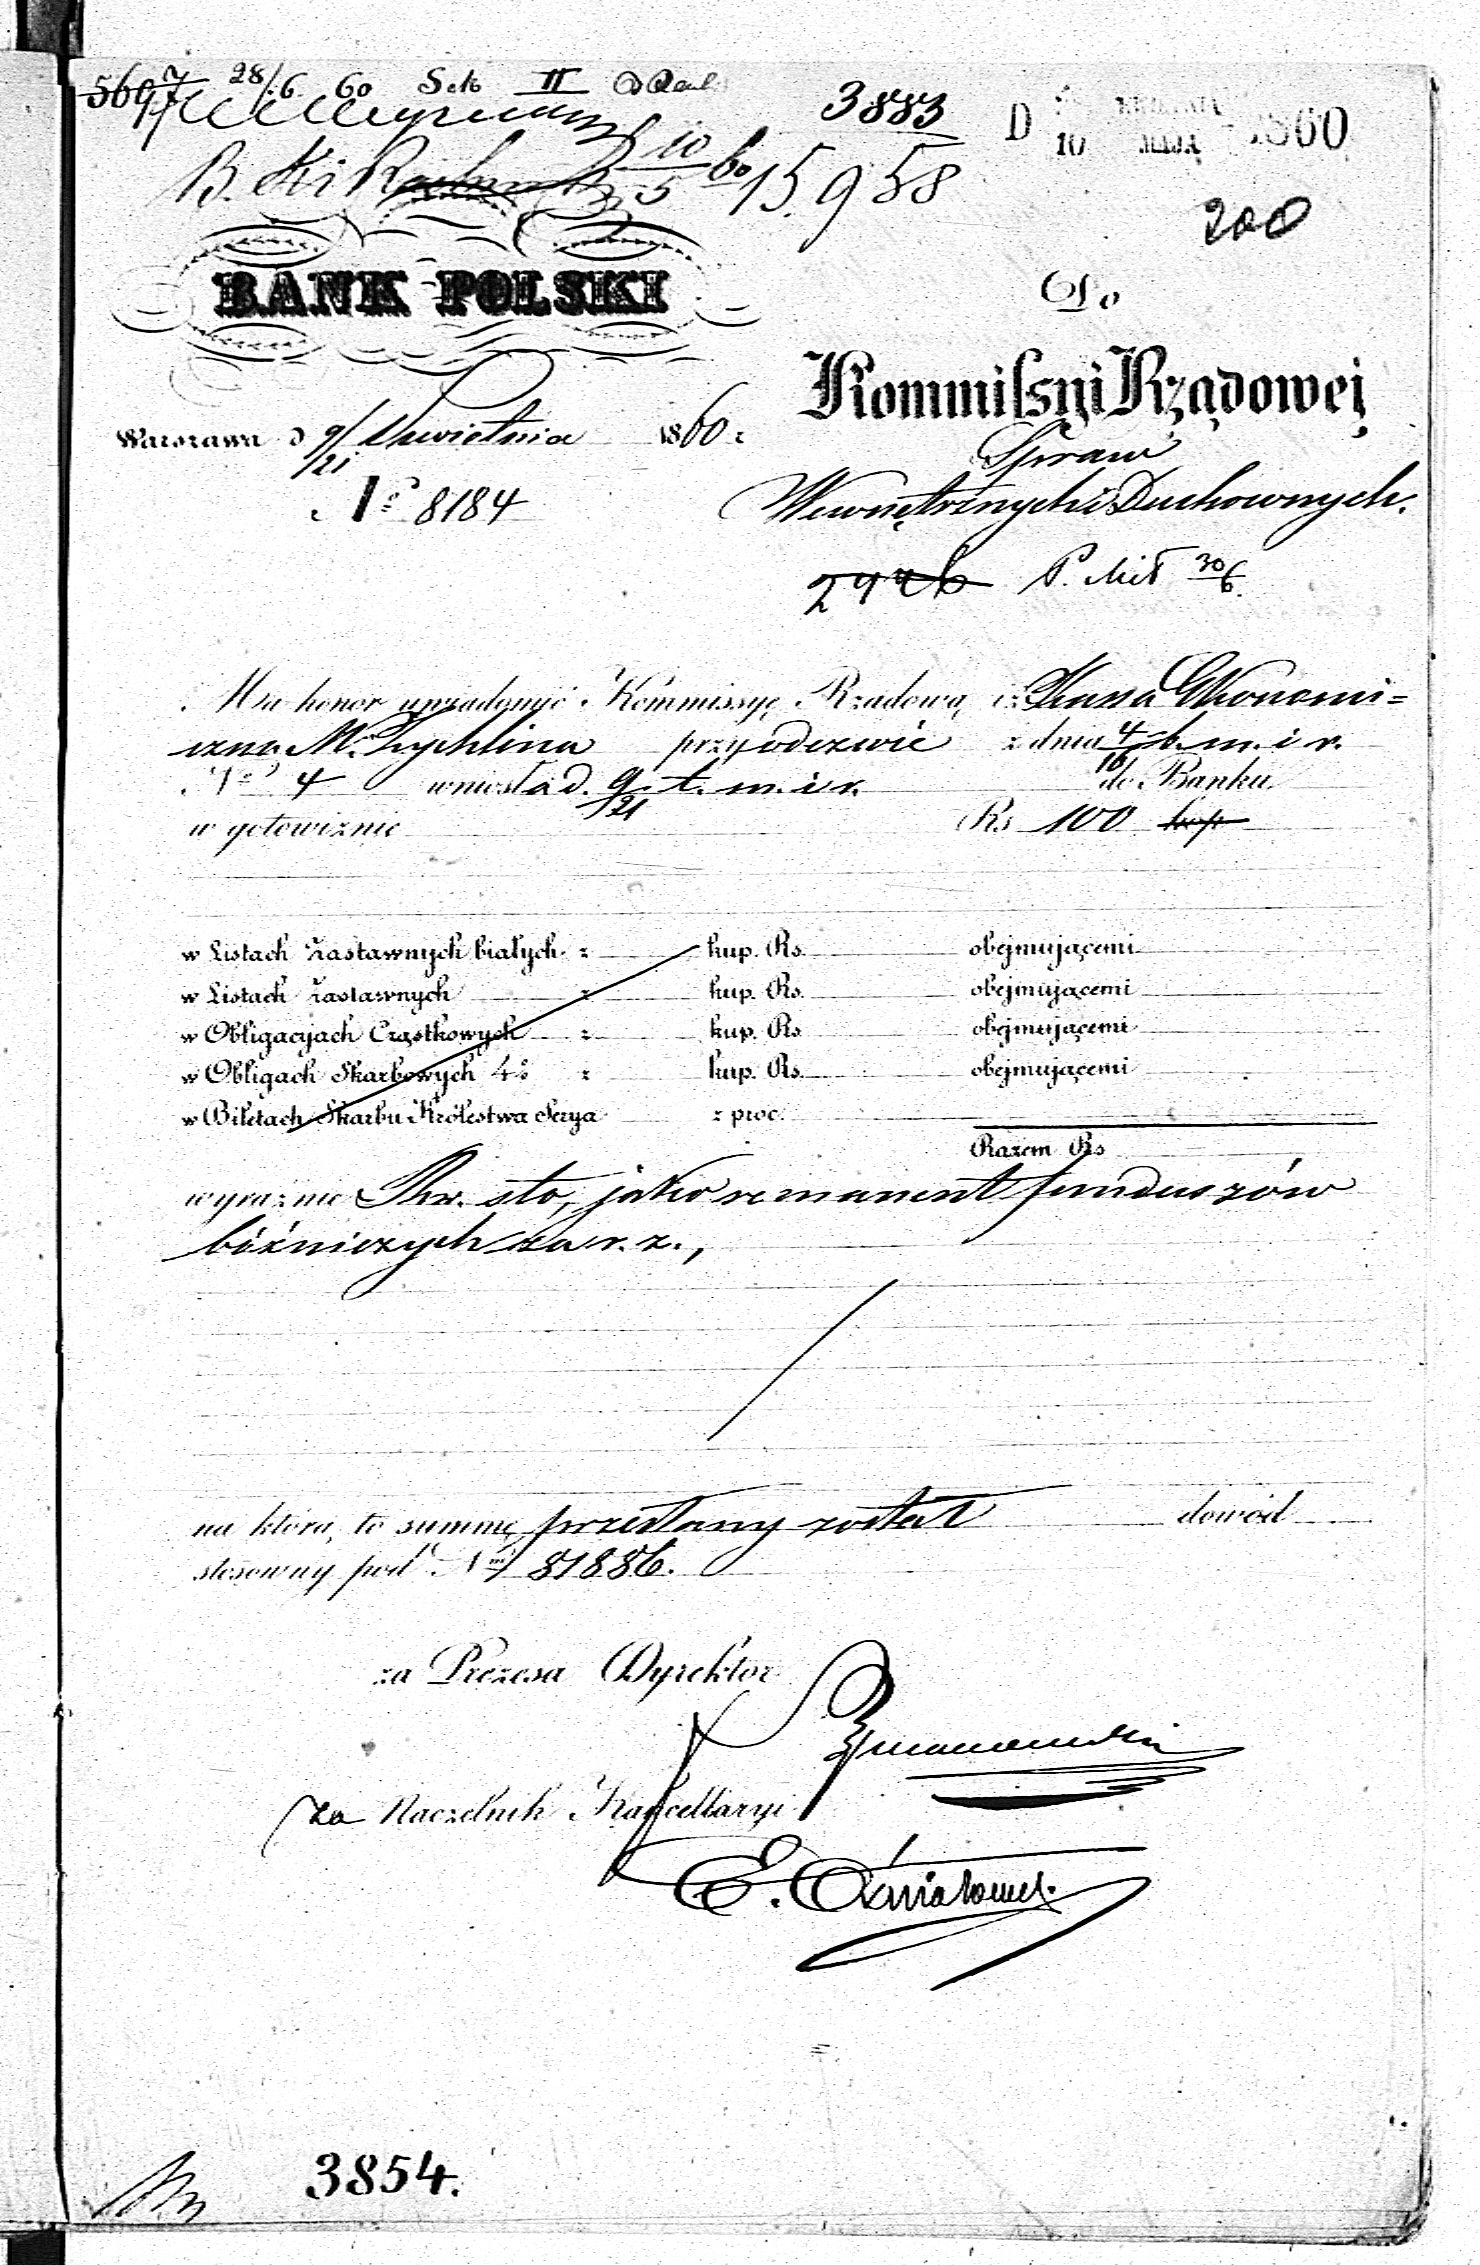 5697 28/6 60 Sek II
3883
D 10 MAJA 1860
B. Ki 10/5 60 15.958
200
BANK POLSKI
Do
Kommissyi Rządowej
Warszawa d 9/21 Kwietnia 1860 r
Spraw
No 8184
Wewnętrznych i Duchownych.
P. Mił 30/6.
Ma honor uwiadomić Kommissyę Rządową iż Kassa Ekonomi=
czna M. Żychlina przy odezwie z dnia 4/16 b. m. i r.
No 4 wniosła d. 9/21 t. m. i r. do Banku
w gotowiznie Rs 100 kop
w Listach Zastawnych białych z kup. Rs. obejmującemi
w Listach Zastawnych z kup. Rs. obejmującemi
w Obligacyjach Cząstkowych z kup. Rs. obejmującemi
w Obligach Skarbowych 4% z kup. Rs. obejmującemi
w Biletach Skarbu Królestwa Serya z proc.
Razem Rs
wyraźnie Rsr. sto, jako remanent funduszów
bóźniczych za r. z.,
na którą to summę przesłany został dowód
stosowny pod Nm 81886.
za Prezesa Dyrektor
za Naczelnik Kancellaryi
3854.